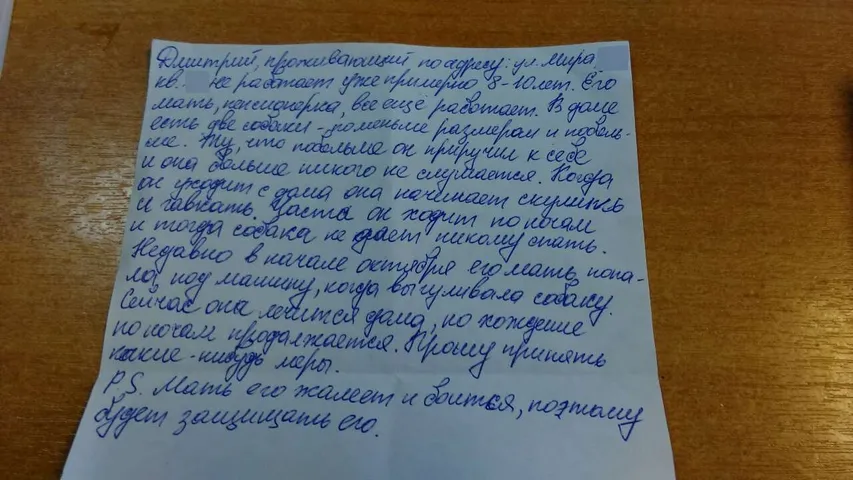 Дмитрий, проживающий по адресу: ул. Мира
кв. не работает уже примерно 8-10 лет. Его
мать, пенсионерка, все ещё работает. В доме
есть две собаки - поменьше размером и поболь-
ше. Ту, что побольше он приручил к себе
и она больше никого не слушается. Когда
он уходит с дома она начинает скулить
и гавкать. Часто он ходит по ночам
и тогда собака не дает никому спать.
Недавно в начале октября его мать попа-
ла под машину, когда выгуливала собаку.
Сейчас она лечится дома, но хождение
по ночам продолжается. Прошу принять
какие-нибудь меры.
P.S. Мать его жалеет и боится, поэтому
будет защищать его.